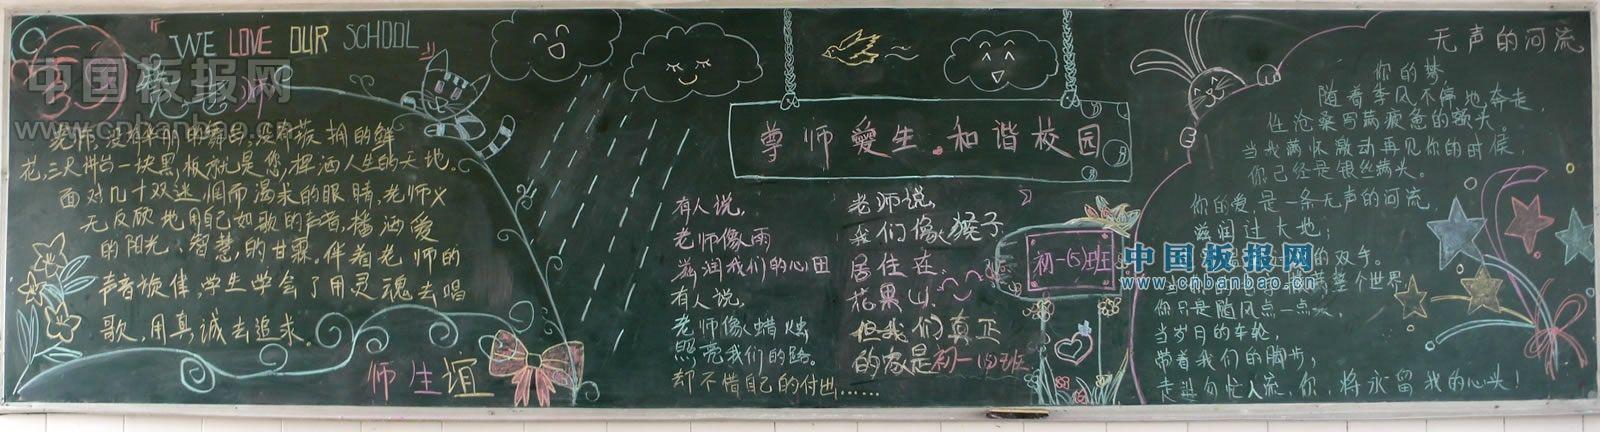 "WE LOVE OUR SCHOOL"
中国板报网
www.cnbanbao.cn
老师,没有华丽的舞台,没有簇拥的鲜
花,三尺讲台一块黑板就是您,挥洒人生的天地。
面对几十双迷惘而渴求的眼睛,老师义
无反顾地用自己如歌的声音,播洒爱
的阳光、智慧的甘霖。伴着老师的
声音旋律,学生学会了用灵魂去唱
歌,用真诚去追求。
师生谊
尊师爱生.和谐校园
有人说,
老师像雨
滋润我们的心田
有人说,
老师像蜡烛
照亮我们的路。
却不惜自己的付出……
老师说,
我们像猴子
居住在
花果山
但我们真正
的家是初一(5)班
初一(5)班
无声的河流
你的梦
随着季风不停地奔走,
住沧桑写满疲惫的额头,
当我满怀激动再见你的时候,
你已经是银丝满头。
你的爱是一条无声的河流,
滋润过大地;
的双手。
整个世界
中国板报网
www.cnbanbao.cn
你只是随风点一点头,
当岁月的车轮,
带着我们的脚步;
走进匆忙人流,你,将永留我的心头!